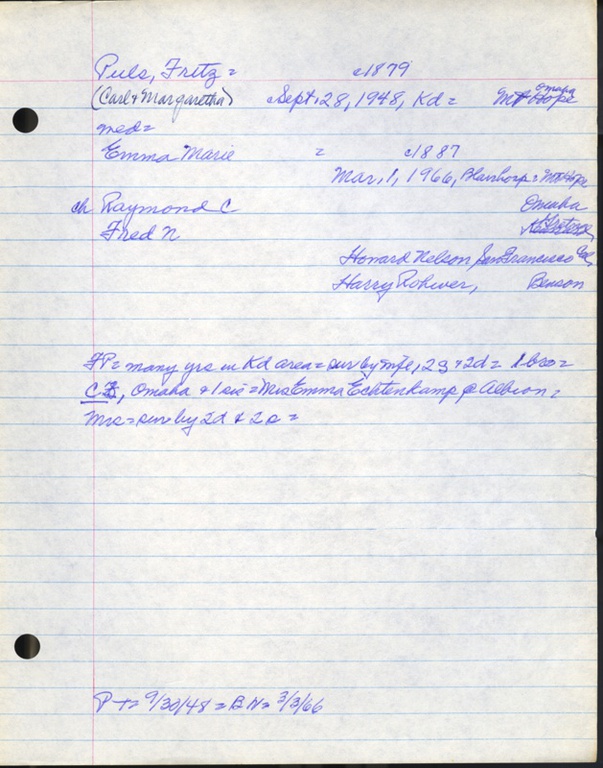 Puls, Fritz = c1879
(Carl & Margaretha) Sept. 28, 1948, Kd = Mt Hope Omaha
med=
Emma Marie = c1887
Mar, 1, 1966, Blairhosp = Mt Hope
ch Raymond C Omaha
Fred N
Howard Nelson San Francisco Cal,
Harry Rohwer, Benson
FP= many yrs in Kd area = sur by mfe, 2s & 2d = 1 bro =
C F, Omaha & 1 sis = Mrs Emma Echtenkamp @ Albion =
Mrs = sur by 2d & 2s =
PT= 9/30/48 = BN= 3/3/66